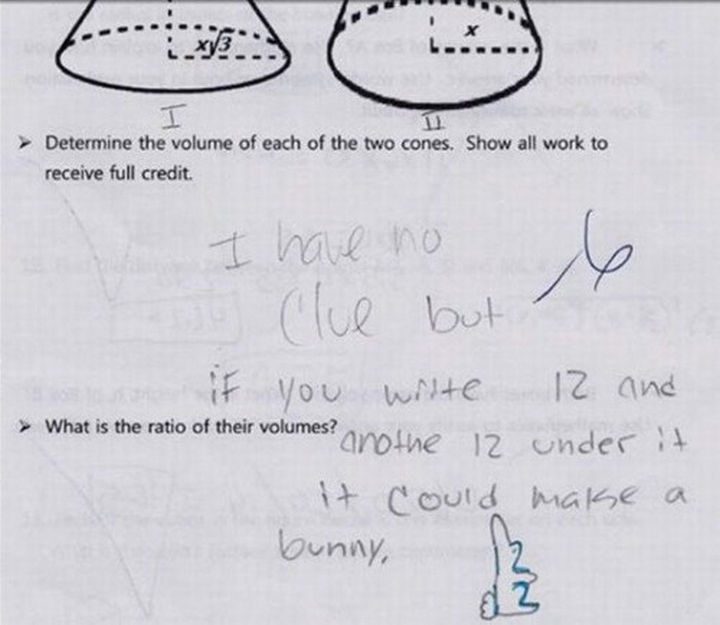 x√3
x
I
II
➢ Determine the volume of each of the two cones. Show all work to
receive full credit.
I have no
C'lue but
if you write 12 and
➢ What is the ratio of their volumes?
anothe 12 under it
it could make a
bunny.
12
12